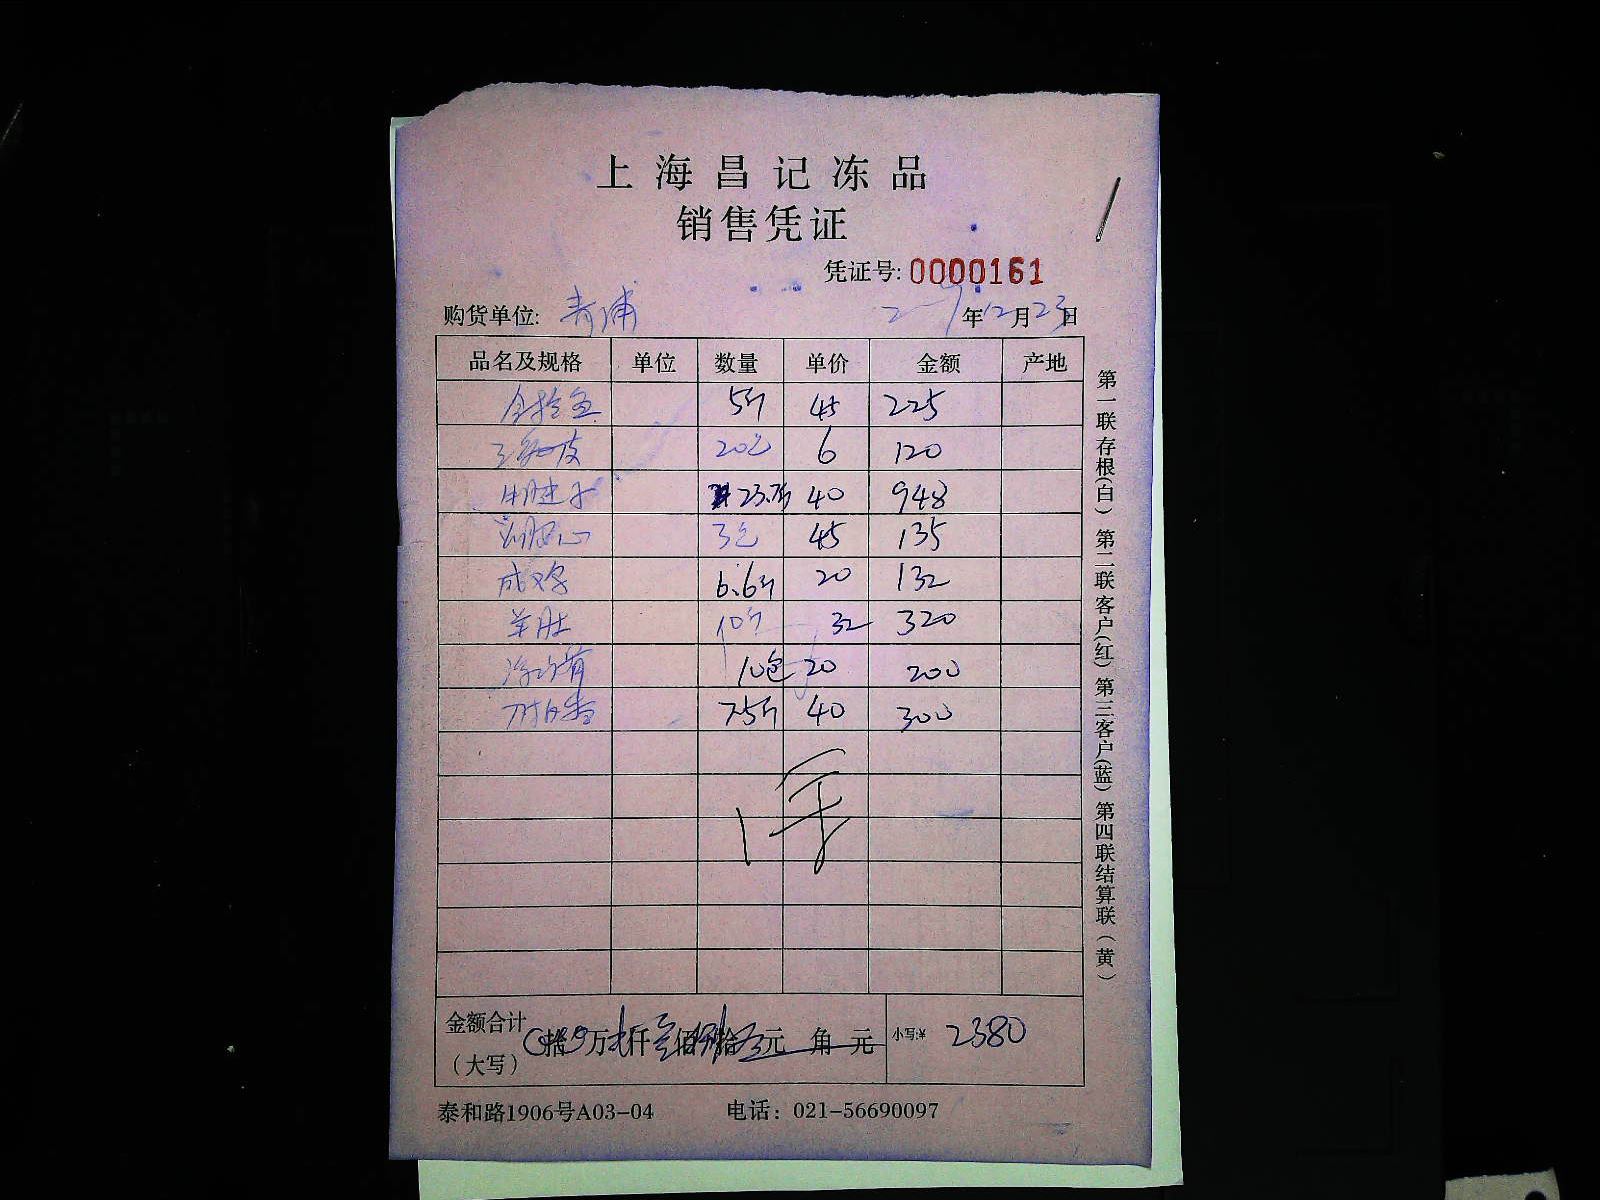 上海昌记冻品
销售凭证
凭证号: 0000161
购货单位: 青浦 年12月23日
品名及规格 单位 数量 单价 金额 产地
5斤 45 225
20包 6 120
牛腱子 23.7斤 40 948
3包 45 135
6.6斤 20 132
羊肚 10斤 32 320
10包 20 200
7.5斤 40 300
金额合计
(大写) 拾 万 仟 佰 拾 元 角 元 小写:¥ 2380
泰和路1906号A03-04 电话: 021-56690097
第一联存根(白) 第二联客户(红) 第三客户(蓝) 第四联结算联(黄)